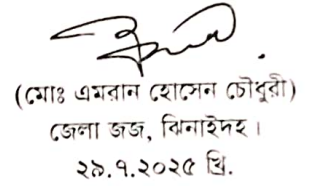 (মোঃ এমরান হোসেন চৌধুরী)
জেলা জজ, ঝিনাইদহ।
২৯.৭.২০২৫ খ্রি.